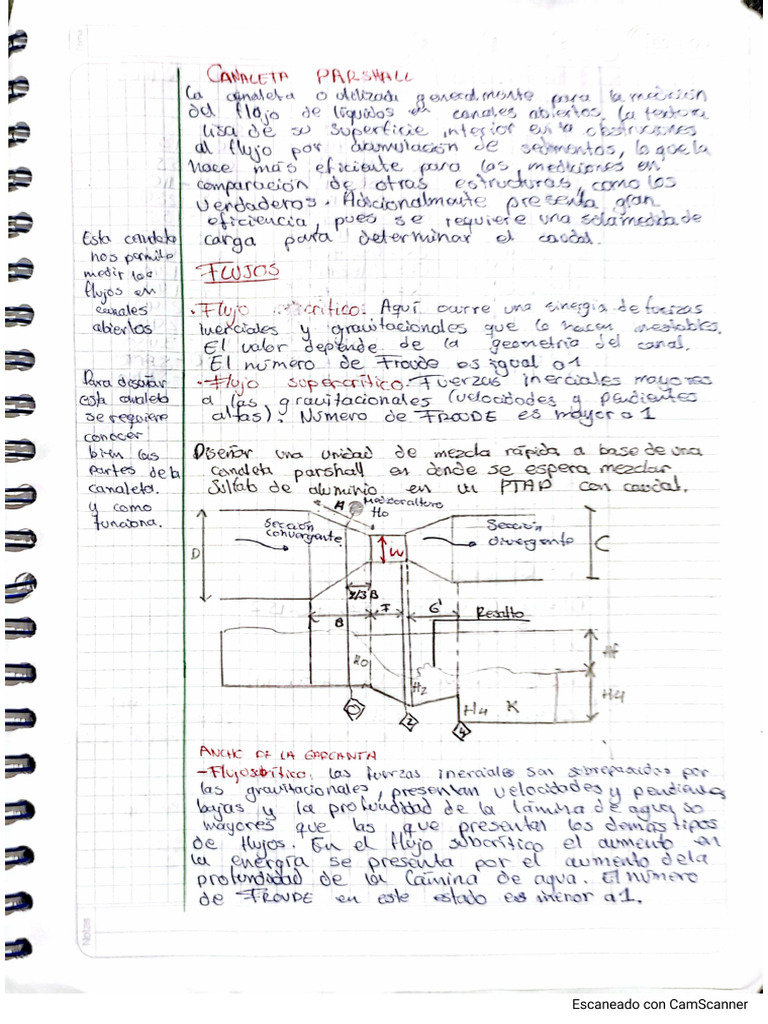 CANALETA PARSHALL
La canaleta o utilizada generalmente para la medición
del flujo de líquidos en canales abiertos, la textura
lisa de su superficie interior evita obstrucciones
al flujo por acumulación de sedimentos, lo que la
hace más eficiente para las mediciones en
comparación de otras estructuras, como los
verdaderos. Adicionalmente presenta gran
eficiencia, pues se requiere una sola medida de
carga para determinar el caudal.
Esta canaleta
nos permite
medir los
flujos en
canales
abiertos
FLUJOS
• Flujo crítico: Aquí ocurre una sinergia de fuerzas
inerciales y gravitacionales que lo hacen inestables.
El valor depende de la geometría del canal.
El número de Froude es igual a 1
• Flujo supercrítico: Fuerzas inerciales mayores
a las gravitacionales (velocidades y pendientes
altas). Número de FROUDE es mayor a 1
Para diseñar
esta canaleta
se requiere
conocer
bien las
partes de la
canaleta.
y como
funciona.
Diseñar una unidad de mezcla rápida a base de una
canaleta parshall en donde se espera mezclar
Sulfato de aluminio en un PTAP con caudal.
A
Medidor altura
Ho
Sección
convergente
Sección
divergente
D
W
C
2/3 B
B
F
G'
Resalto
Ho
H2
Hf
H4
H4
K
0
2
4
ANCHO DE LA GARGANTA
- Flujo subcrítico: las fuerzas inerciales son sobrepasadas por
las gravitacionales, presentan velocidades y pendientes
bajas y la profundidad de la lámina de agua so
mayores que las que presentan los demás tipos
de flujos. En el flujo subcrítico el aumento en
la energía se presenta por el aumento dela
profundidad de la lámina de agua. El número
de FROUDE en este estado es menor a 1.
Notas
Escaneado con CamScanner